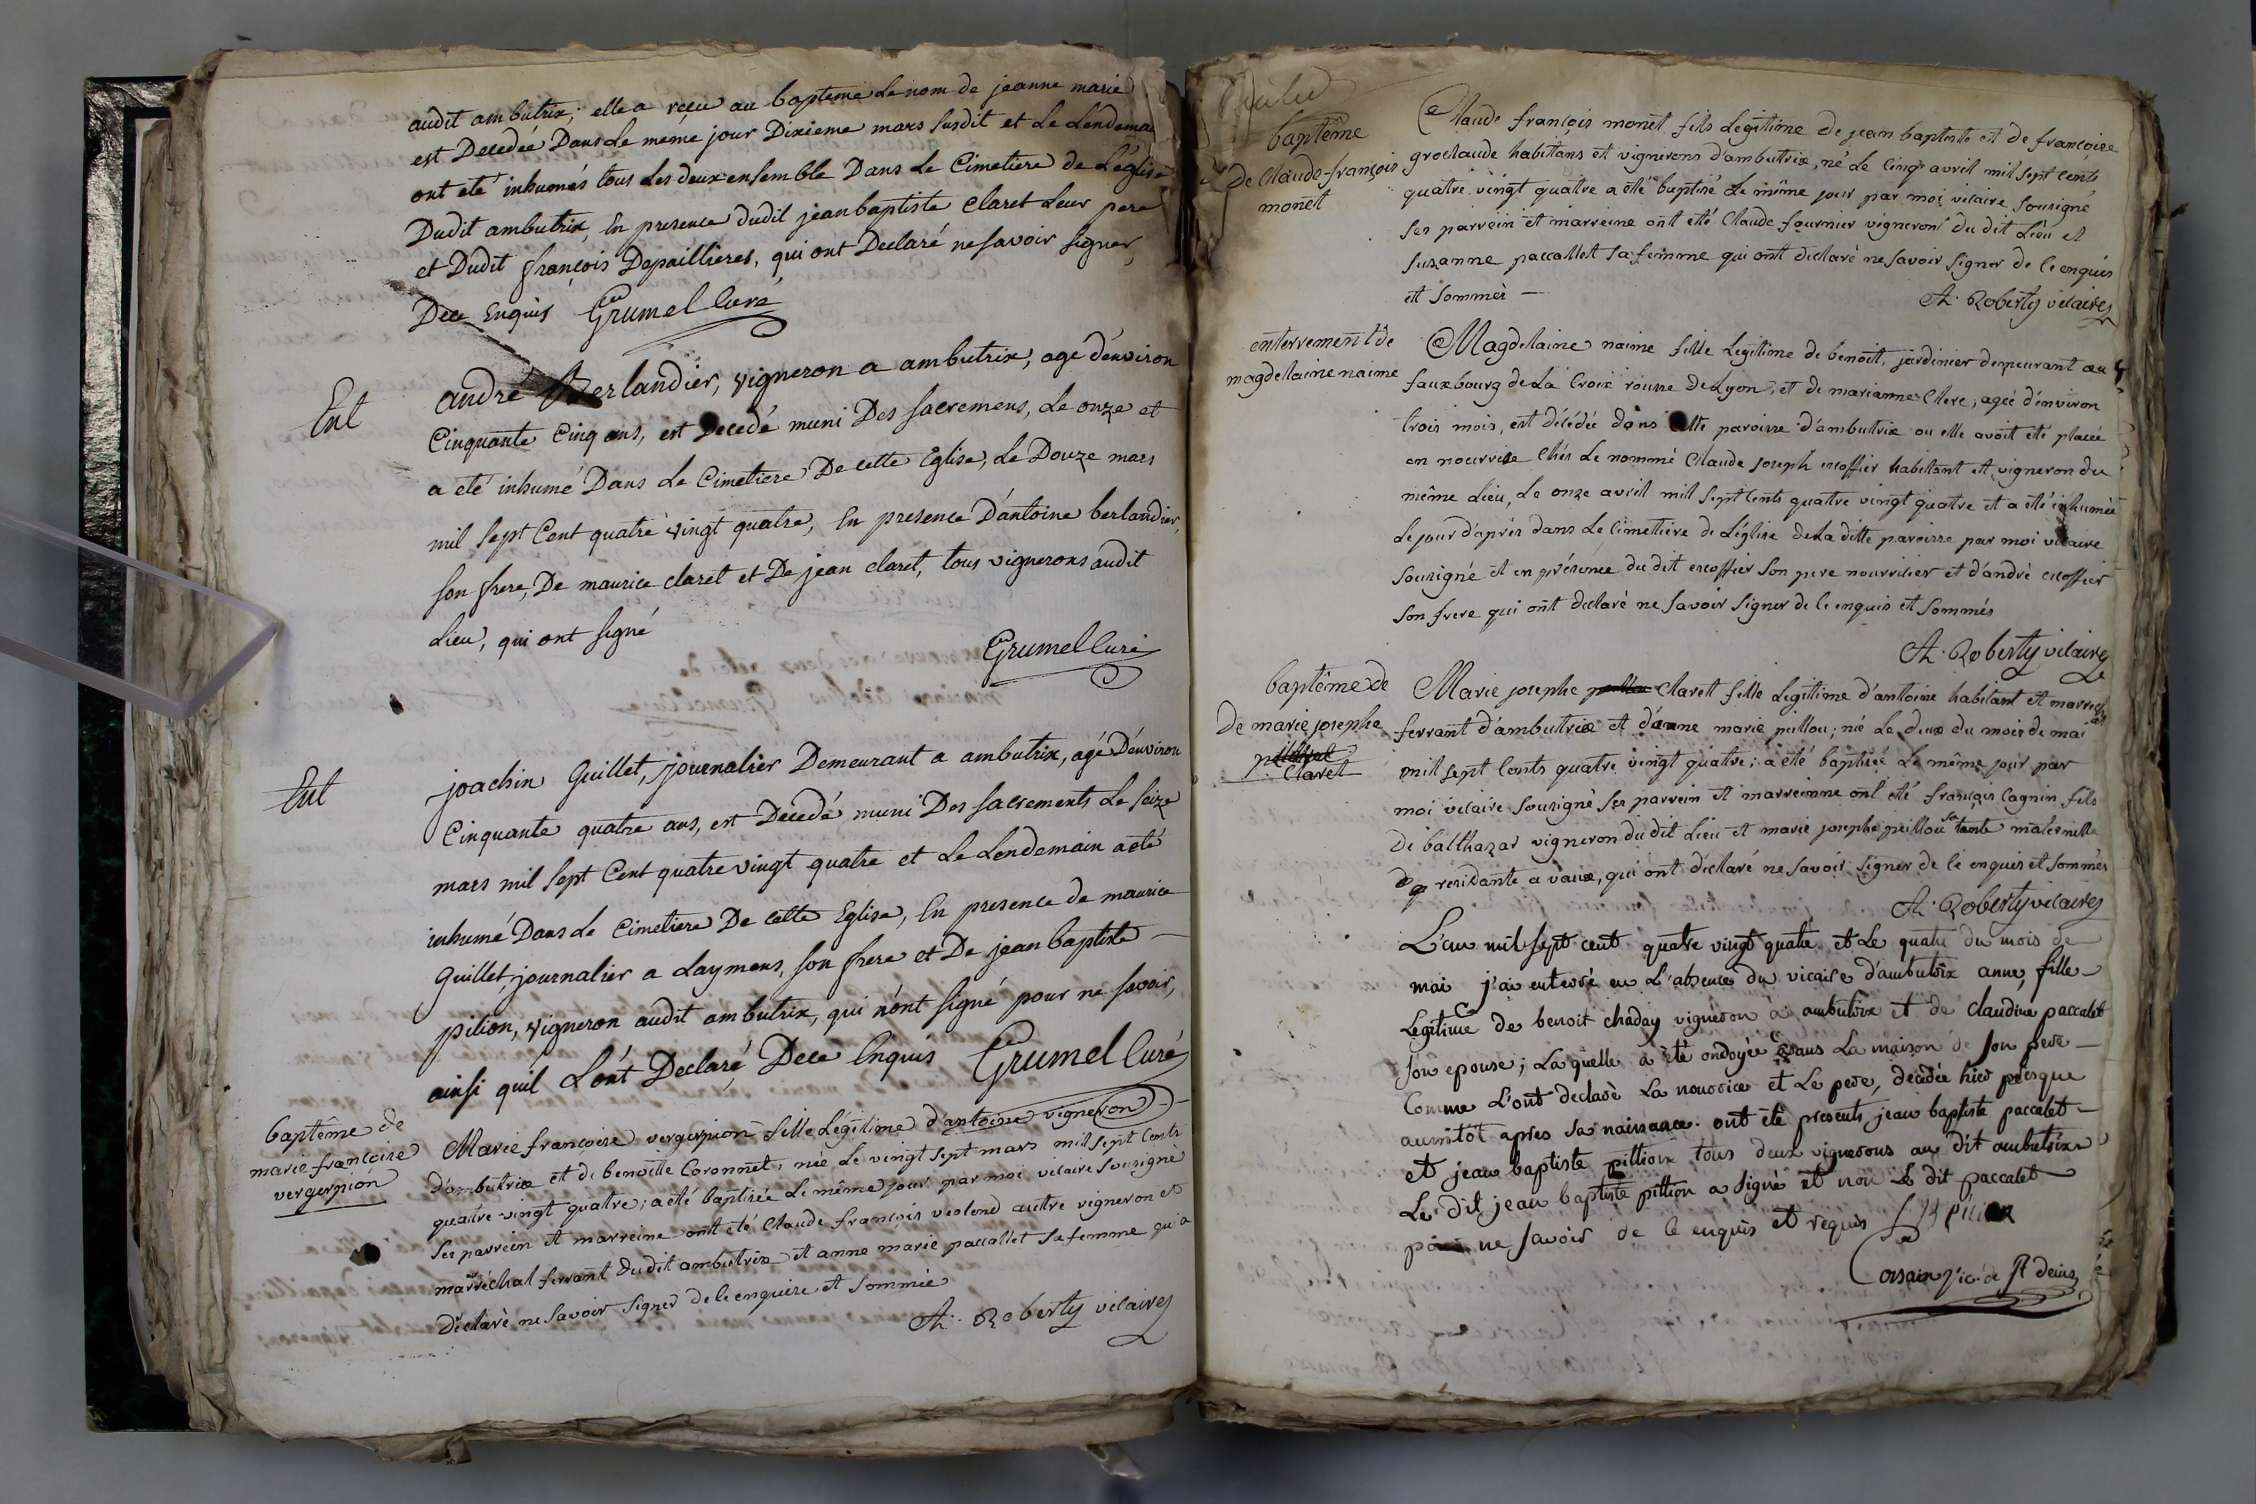 audit ambutrix; elle a reçu au baptême le nom de jeanne marie
est Decedée Dans le meme jour Dixieme mars susdit et le Lendemai
ont eté inhumés tous les deux ensemble Dans le Cimetiere de Léglise
Dudit ambutrix, En presence dudit jean baptiste Claret leur pere
et Dudit françois Depaillieres, qui ont Declaré ne savoir signer,
De ce Enquis Grumel Curé
Ent
andré Berlandier, vigneron a ambutrix, agé d'environ
Cinquante Cinq ans, est Decedé muni Des sacremens, Le onze et
a eté inhumé Dans le Cimetiere De cette Eglise, Le Douze mars
mil sept Cent quatre vingt quatre, En presence D'antoine berlandier,
son frere, De maurice claret et De jean claret, tous vignerons audit
Lieu, qui ont signé
Grumel Curé
Ent
joachin Guillet, journalier Demeurant a ambutrix, agé D'environ
Cinquante quatre ans, est Decedé muni Des sacrements Le seize
mars mil sept Cent quatre vingt quatre et Le Lendemain a eté
inhumé Dans le Cimetiere De cette Eglise, En presence de maurice
Guillet, journalier a Laymens, son frere et De jean baptiste
pition, vigneron audit ambutrix, qui n'ont signé pour ne savoir,
ainsi quil L'ont Declaré De ce Enquis Grumel Curé
baptême de
marie françoise
vergerpion
Marie françoise vergerpion fille Légitime d'antoine vigneron
d'ambutrix et de benoitte Coronnet, née Le vingt sept mars mil sept cents
quatre vingt quatre; a été baptisée Le même jour par moi vicaire sousigné
ses parrein et marreine ont été Claude françois violend autre vigneron et
marréchal ferrant du dit ambutrix et anne marie paccallet sa femme qui a
déclaré ne savoir signer de le enquise et sommée
A. Roberty vicaire
baptême
de Claude-françois
monet
Claude françois monet fils Légitime de jean baptiste et de françoise
groclaude habitans et vignerons d'ambutrix, né Le cinq avril mil sept cents
quatre vingt quatre a été baptisé Le même jour par moi vicaire sousigné
ses parrein et marreine ont été Claude fournier vigneron du dit Lieu et
suzanne paccallet sa femme qui ont déclaré ne savoir signer de le enquis
et sommés
A. Roberty vicaire
enterrement de
magdelaine naime
Magdelaine naime fille Legitime de benoit, jardinier demeurant au
fauxbourg de La Croix rousse de Lyon, et de marianne Clerc, agée d'environ
trois mois, est décédée dans cette paroisse d'ambutrix ou elle avoit été placée
en nourrise Chés Le nommé Claude Joseph escoffier habitant et vigneron du
même Lieu, Le onze avril mil sept cents quatre vingt quatre et a été inhumée
Le jour d'après dans Le Cimettiere de L'église de La ditte paroisse par moi vicaire
sousigné et en présence du dit escoffier son pere nourrisier et d'andré escoffier
son frere qui ont declaré ne savoir signer de le enquis et sommés
A. Roberty vicaire
baptême de
de marie josephe
Claret
Marie josephe Clarett fille Legitime d'antoine habitant et marréch
ferrant d'ambutrix et d'anne marie peillou; née Le deux du mois de mai
mil sept cents quatre vingt quatre; a été baptisée Le même jour par
moi vicaire sousigné ses parrein et marreinne ont été françois Cagnin fils
de balthazar vigneron du dit Lieu et marie josephe peillou sa tante maternelle
residante a vaux, qui ont déclaré ne savoir signer de le enquis et sommés
A. Roberty vicaire
L'an mil sept cent quatre vingt quatre et Le quatre du mois de
mai j'ai enterré en L'absence du vicaire d'ambutrix anne, fille
Legitime de benoit chaday vigneron à ambutrix et de claudine paccalet
son epouse; Laquelle a été ondoyée Dans La maison de son pere
Comme L'ont declaré La nourrice et Le pere, decedée hier presque
aussitot apres sa naissance. ont été presents jean baptiste paccalet
et jean baptiste pillion tous deux vignerons au dit ambutrix
Le dit jean baptiste pillion a signé et non Le dit paccalet
pour ne savoir de ce enquis et requis
Corsain vic. de st denis